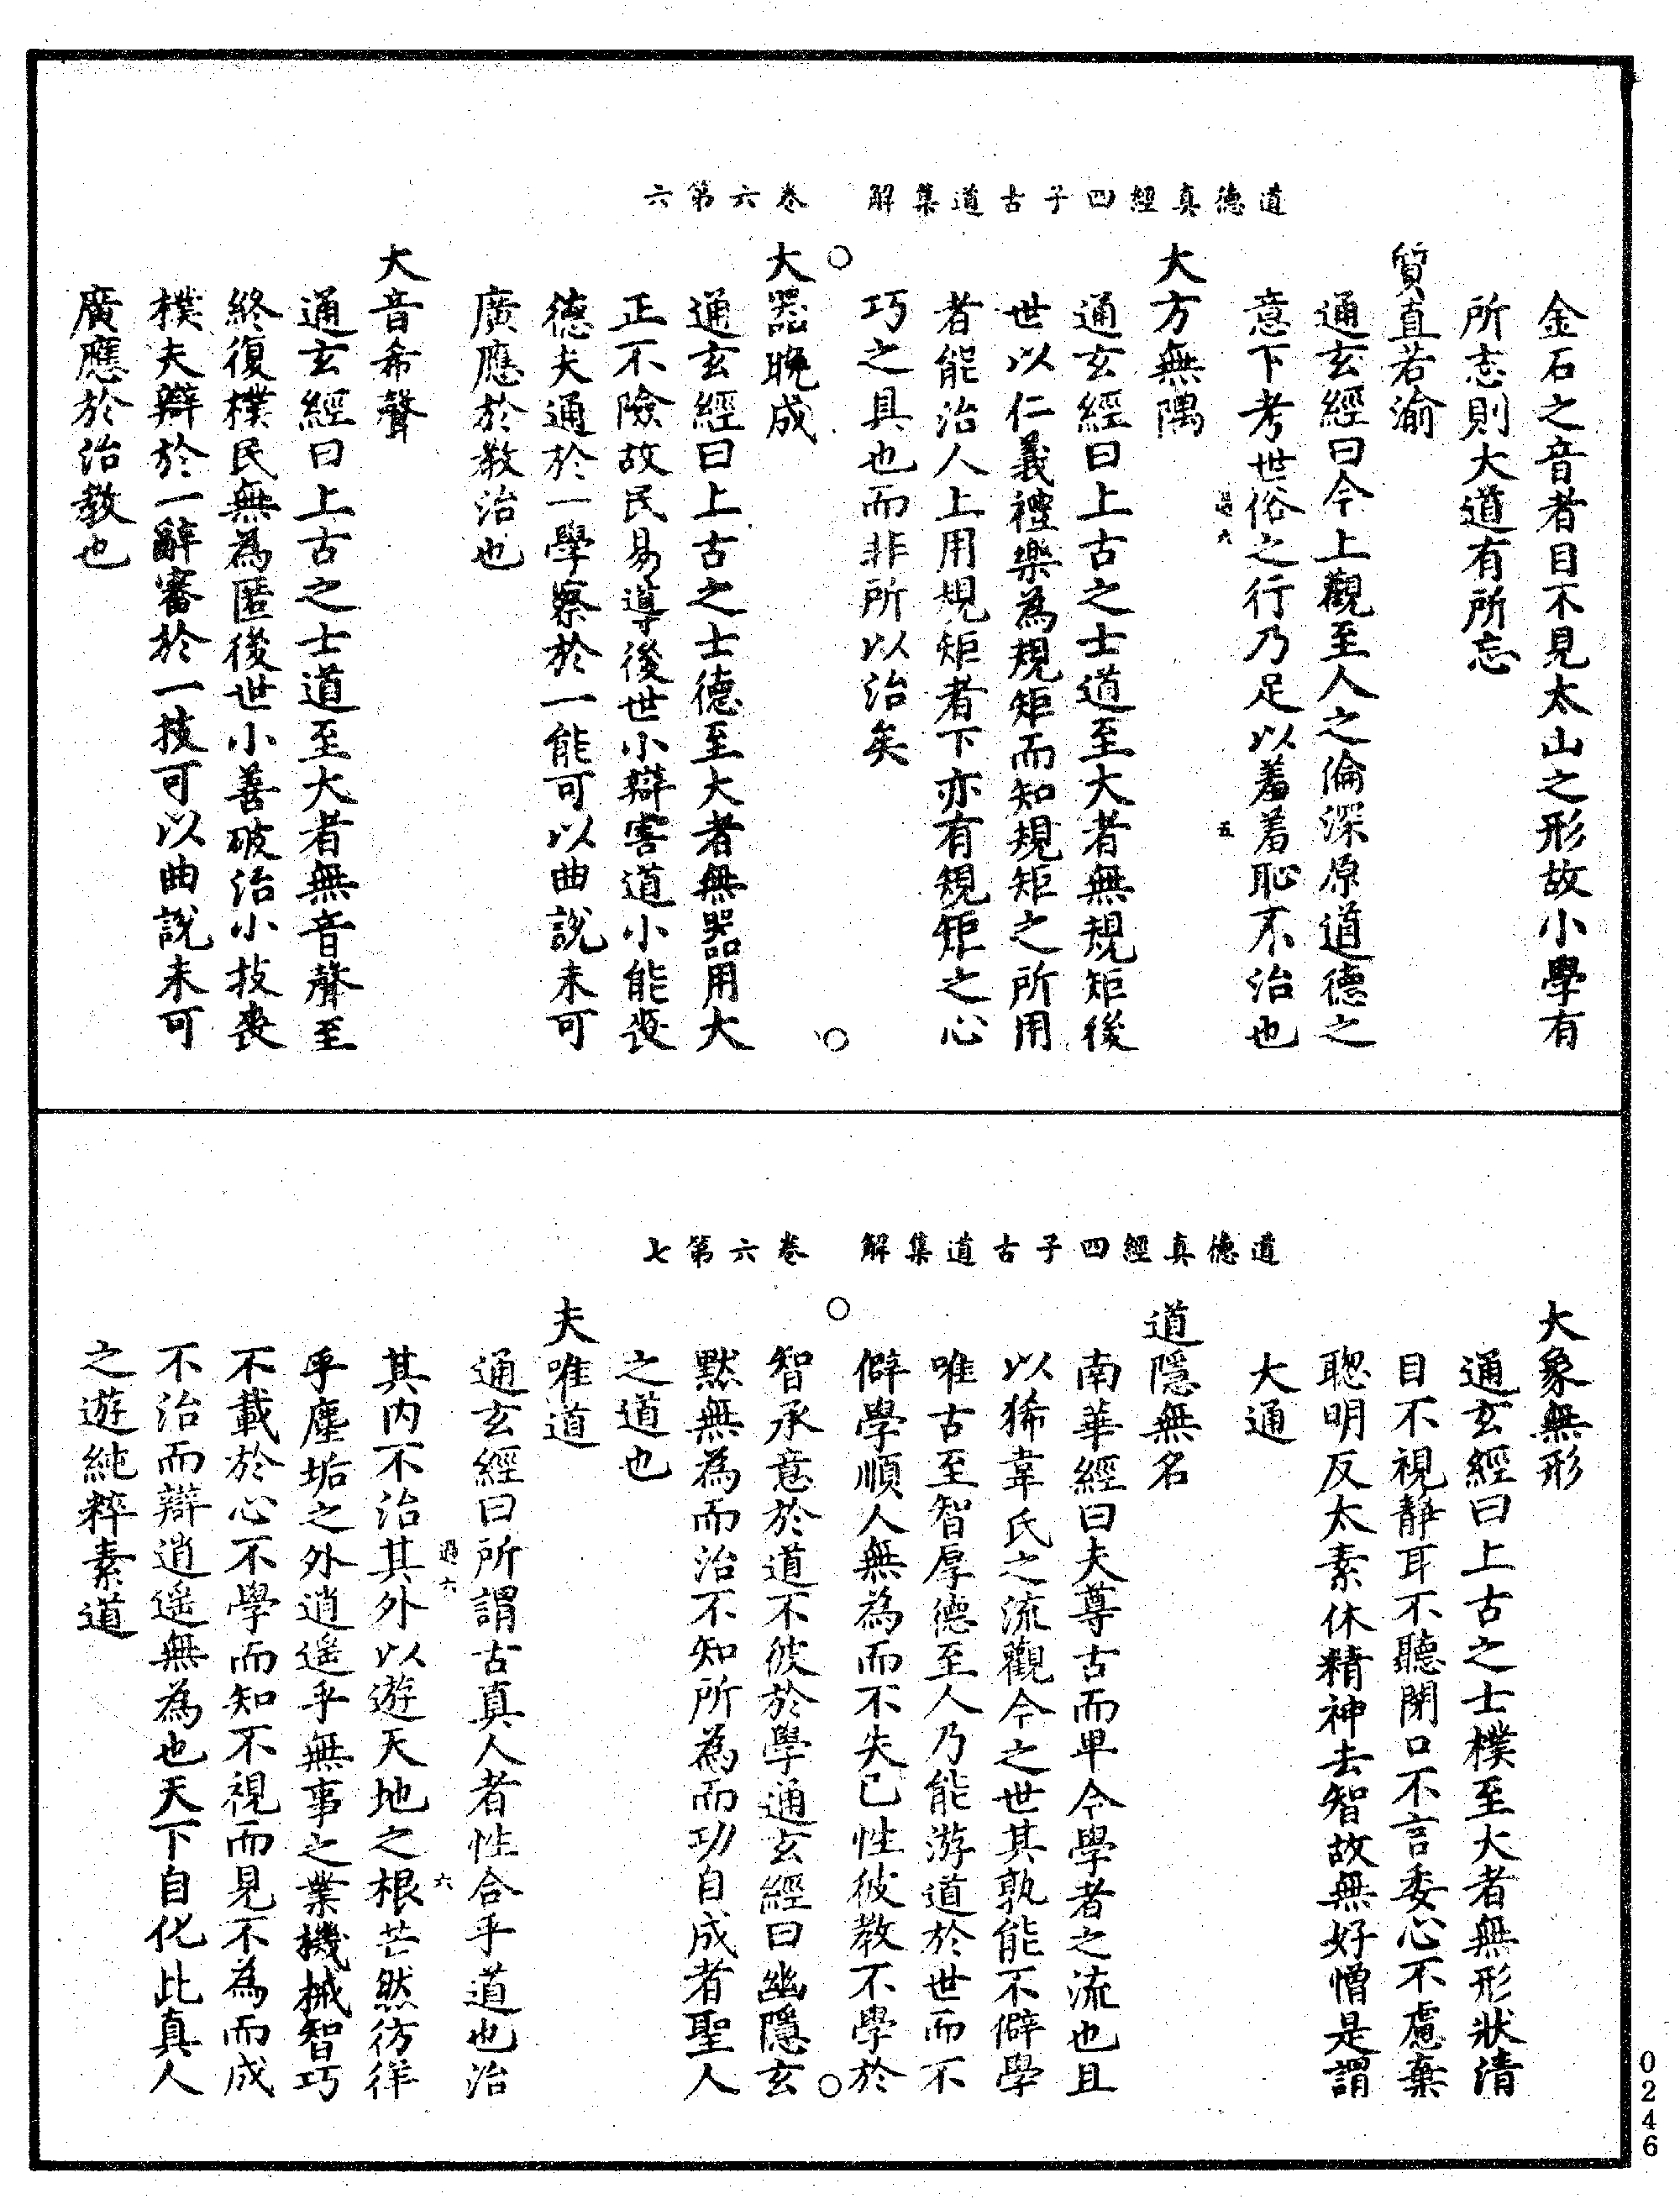 道德真經四子古道集解　卷六第六
金石之音者目不見太山之形故小學有
所志則大道有所忘
質直若渝
通玄經曰今上觀至人之倫深原道德之
意下考世俗之行乃足以羞羞恥不治也
五
大方無隅
通玄經曰上古之士道至大者無規矩後
世以仁義禮樂為規矩而知規矩之所用
者能治人上用規矩者下亦有規矩之心
巧之具也而非所以治矣
大器晚成
通玄經曰上古之士德至大者無器用大
正不險故民易導後世小辯害道小能喪
德夫通於一學察於一能可以曲說未可
廣應於教治也
大音希聲
通玄經曰上古之士道至大者無音聲至
終復樸民無為匿後世小善破治小技喪
樸夫辯於一辭審於一技可以曲說未可
廣應於治教也
道德真經四子古道集解　卷六第七
大象無形
通玄經曰上古之士樸至大者無形狀清
目不視靜耳不聽閉口不言委心不慮棄
聰明反太素休精神去智故無好憎是謂
大通
道隱無名
南華經曰夫尊古而卑今學者之流也且
以狶韋氏之流觀今之世其孰能不僻學
唯古至智厚德至人乃能游道於世而不
僻學順人無為而不失已性彼教不學於
智承意於道不彼於學通玄經曰幽隱玄
默無為而治不知所為而功自成者聖人
之道也
夫唯道
通玄經曰所謂古真人者性合乎道也治
六
其内不治其外以遊天地之根芒然彷徉
乎塵垢之外逍遙乎無事之業機械智巧
不載於心不學而知不視而見不為而成
不治而辯逍遙無為也天下自化此真人
之遊純粹素道
0246